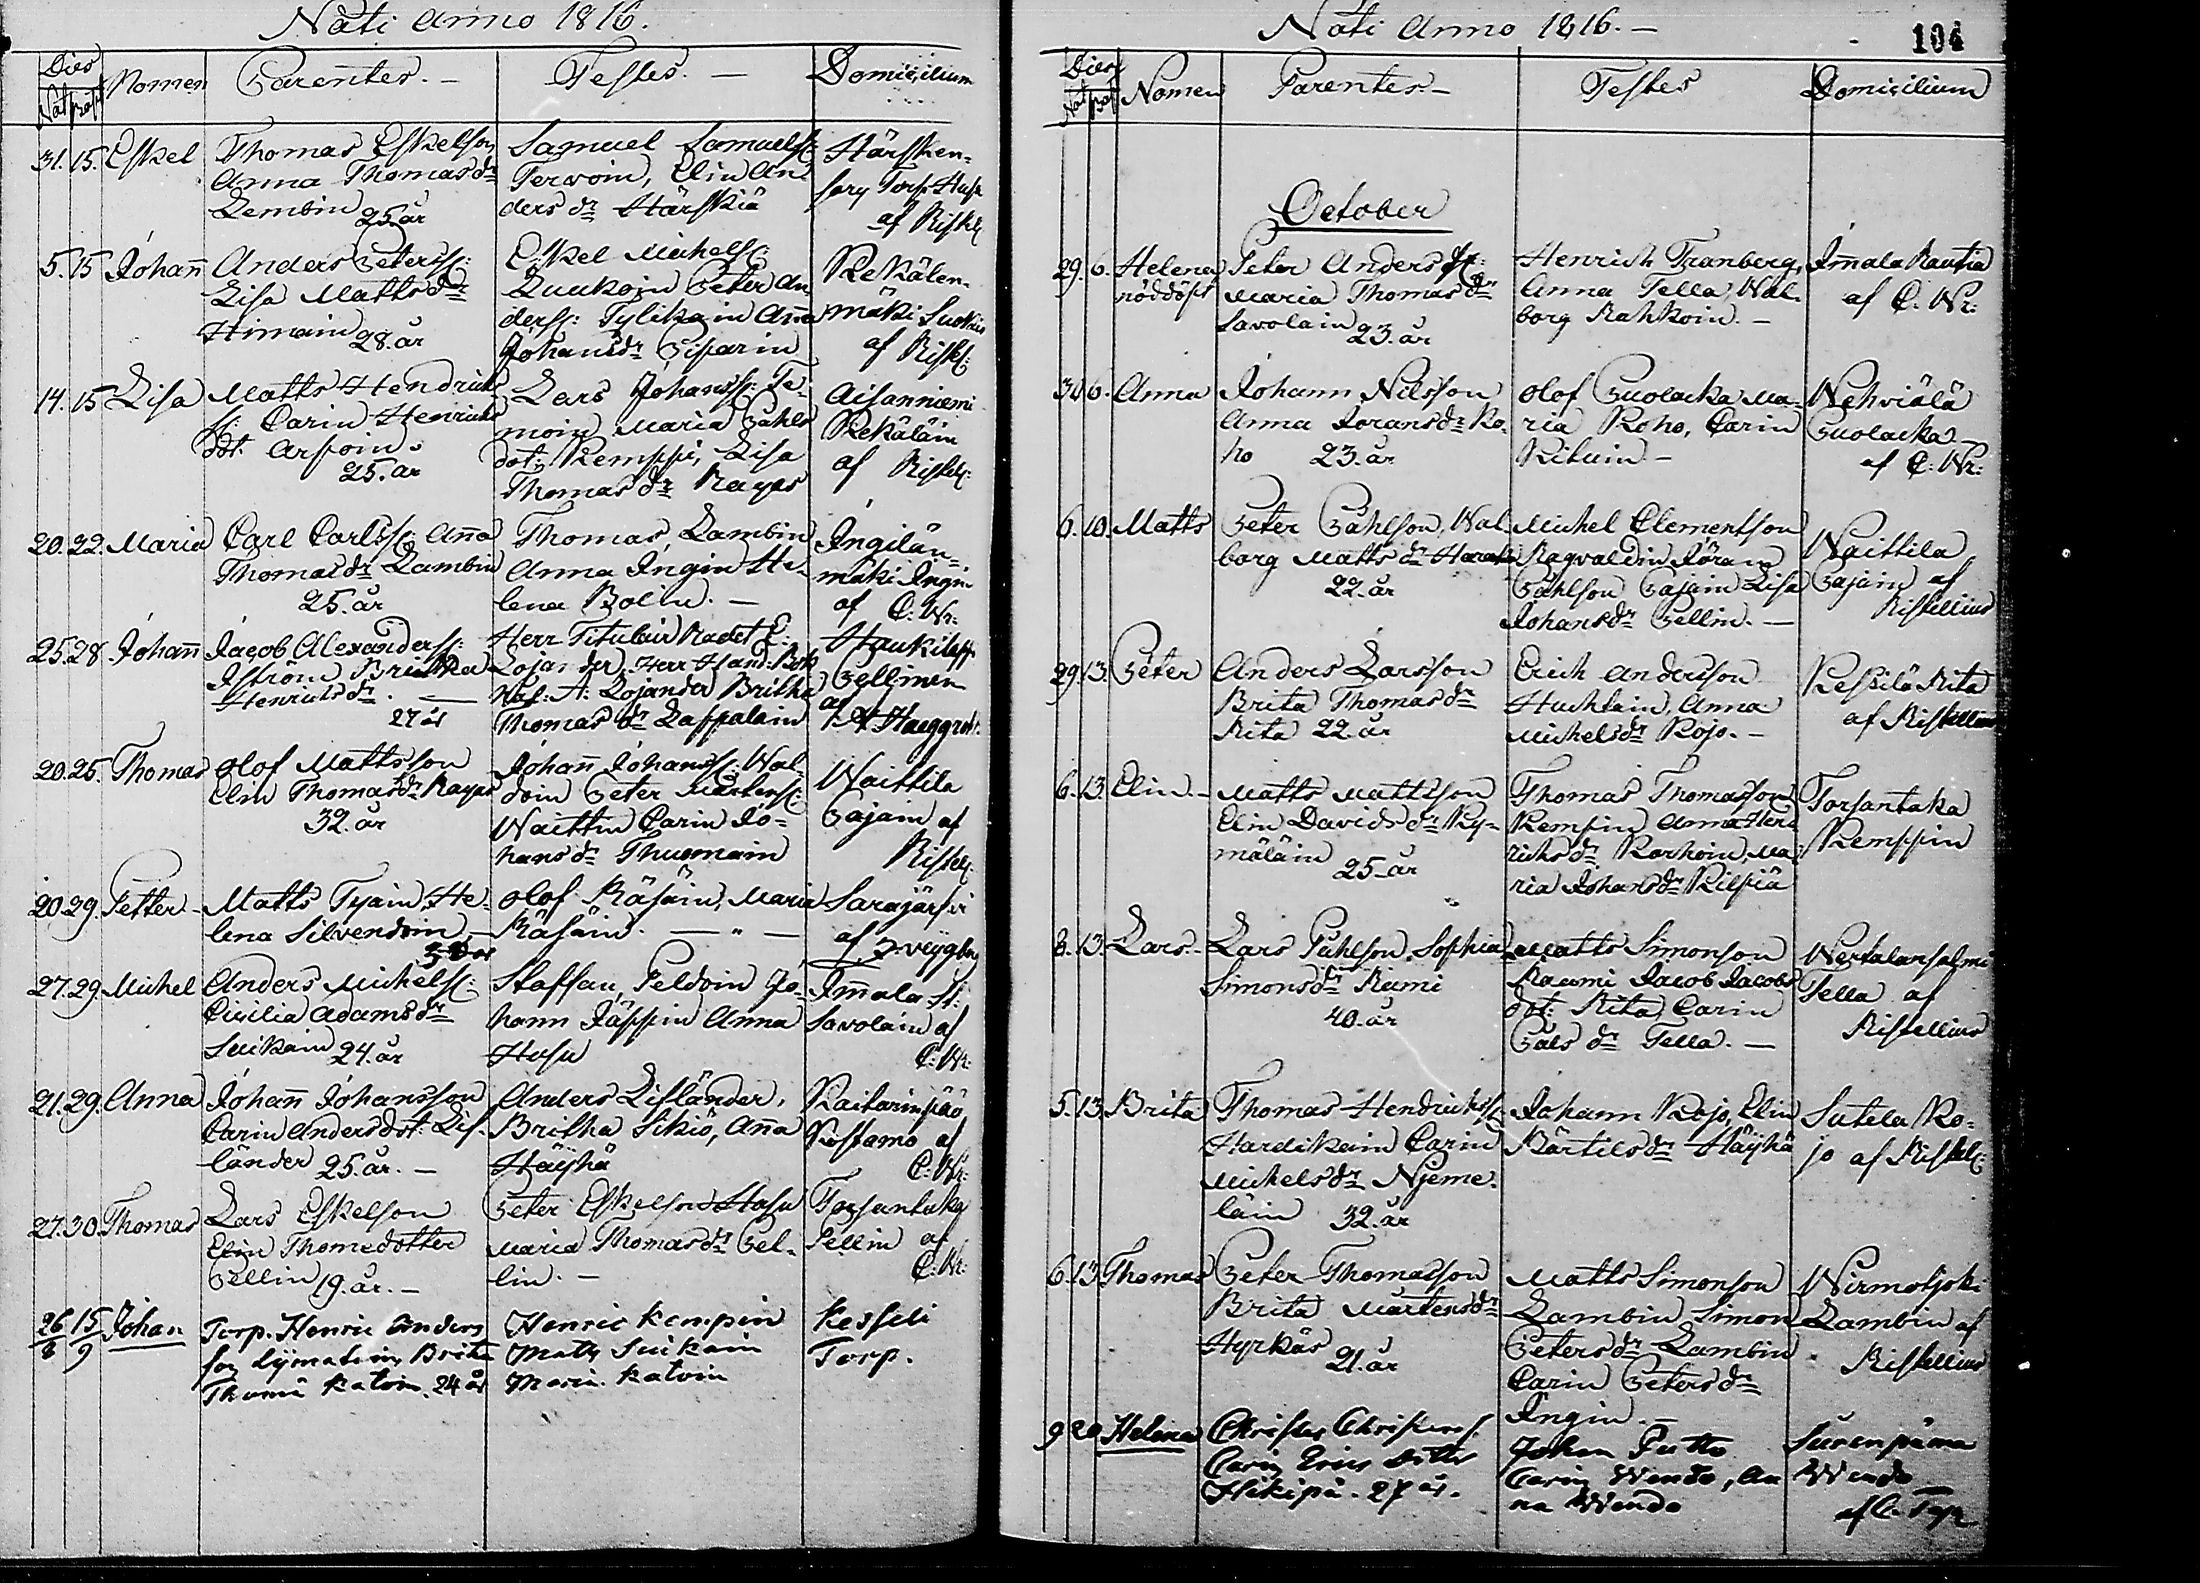 Nati Anno 1816.
Dies
Nat Bapt Nomen Parentes. — Testes. — Domicilium
31. 15. Eskel Thomas Eskelson Samuel Samuels:
Anna Thomasdr Terwoin, Elin An
Lembin 25. år
ders dr Härskiä
Torp Husu
af Riskel
5. 15 Johan̄ Anders Peterss:
Lisa Mattsdr
Himain 28. år
Eskel Michels:
Luukoin Peter An
derss: Tylikain Anna
Johansdr Pisarin
Kekälen
mäki Suokin
af Riskl:
14. 15 Lisa Matts Hendrichs
s: Carin Henrichs
dt. Arpoin
25. år
Lars Johanss: Te
moin Maria Påhls
dot: Kemppi, Lisa
Thomas dr Rayas
Aisanniemi
Kekäläin
af Riskel:
20. 22. Maria Carl Carlss: An̄a
Thomasdr Lambin
25. år
Thomas Lambin
Anna Ingin He-
lena Bolin. —
Ingilän-
mäki Ingin
af C: Wr:
25. 28 Johan̄ Jacob Alexanders:
Iström Britha
Henrichsdr.
27 år
Herr Titulair Radet E:
Lojander, Herr Hand: Bok
hål: A: Lojander Britha
Thomas dr Lappalain
Haukilapp
Pellinen
af
A Haeggrot:
20. 25. Thomas Olof Mattsson
Elin Thomasdr Rayas
32. år
Johan̄ Johanss: Wal-
doin Peter Mårtens:
Waittin Carin Jo-
hans dr Thuomain
Waittila
Pajain af
Riskel:
20. 29. Petter Matts Tyain, He-
lena Silvendoin, —
Olof Räsäin, Maria
Räsäin. — " —
Sarajärfvi
af
27. 29. Michel Anders Michels:
Cicilia Adamsdr
Suikain 24. år
Staffan, Peldoin Jo-
hann Jäppin Anna
Husu
Im̄ala St:
Savolain af
C: Wr:
21. 29. Anna Johan̄ Johansson
Carin Andersdot: Lif-
länder 25. år. —
Anders Lifländer,
Britha Sikiö, An̄a
Häyhä
Raitarinpää
Kostamo af
C: Wr:
27. 30. Thomas Lars Eskelson
Elin Thomedotter
Pellin 19. år. —
Peter Eskelson Husu
Maria Thomasdr Pel-
lin. —
Torsantaka
Pellin af
C: Wr:
26/8 15/9 Johan Torp. Henric Anders
son Lymatin, Brita
Thomæ Katvin. 24 år
Henric Kempin
Matts Suikain
Maria Katvin
Kesseli
Torp.
Nati Anno 1816. —
104
Dies
Nat Bapt Nomen Parentes — Testes Domicilium
October
29. 6. Helena
nöddöpt
Peter Anders s:
Maria Thomas dr
Savolain
23. år
Henrich Tranberg,
Anna Tella, Wal-
borg Rahkoin. —
Im̄ala Rautia
af C: Wr:
30 6. Anna Johann Nilsson
Anna Joransdr Ro-
ho 23. år
Olof Puolacka Ma-
ria Roho, Carin
Rituin. —
Wehviälä
Puolacka —
af C: Wr:
6. 10. Matts Peter Påhlson, Wal
borg Matts dr Haraka
22. år
Michel Clementson
Ragvaldin Jöran
Påhlson Pajain Lisa
Johansdr Pellin. —
Waittila
Pajain af
Riskellius
29. 13. Peter Anders Larsson
Brita Thomasdr
Rita 22 år
Erich Andersson
Huchtain, Anna
Michelsdr Rojo. —
Kessilä Rita
af Riskellius
6. 13. Elin — Matts Mattsson
Elin Davidsdr Ky-
mäläin 25 år
Thomas Thomasson
Kempin Anna Hen
richsdr Korhoin, Ma-
ria Johansdr Kilpiä
Torsantaka
Kemppin
8. 13. Lars — Lars Påhlson, Sophia
Simonsdr Rumi
40. år
Matts Simonson
Raumi Jacob Jacobs
dot: Rita Carin
Påls dr Tella. —
Wertalansalmi
Tella af
Riskellius
5. 13. Brita Thomas Hendrichss:
Hardikain Carin
Michelsdr Njeme-
läin 32. år
Johann Rojo, Elin
Bärtilsdr Häyhä
Sutela Ro-
jo af Riskel:
6. 13. Thomas Peter Thomasson
Brita Mårtensdr
Hyrkäs 21. år
Matts Simonson
Lambin Simon
Petersdr Lambin
Carin Petersdr
Ingin. —
Wirmotjoki
Lambin af
Riskellius
9 20 Helena Christer Christers.
Carin Erics dotter
Hikipä. 27 år.
Johan Putto
Carin Wendo, An
na Wendo
Surenpäma
Wendo
af C. Typ